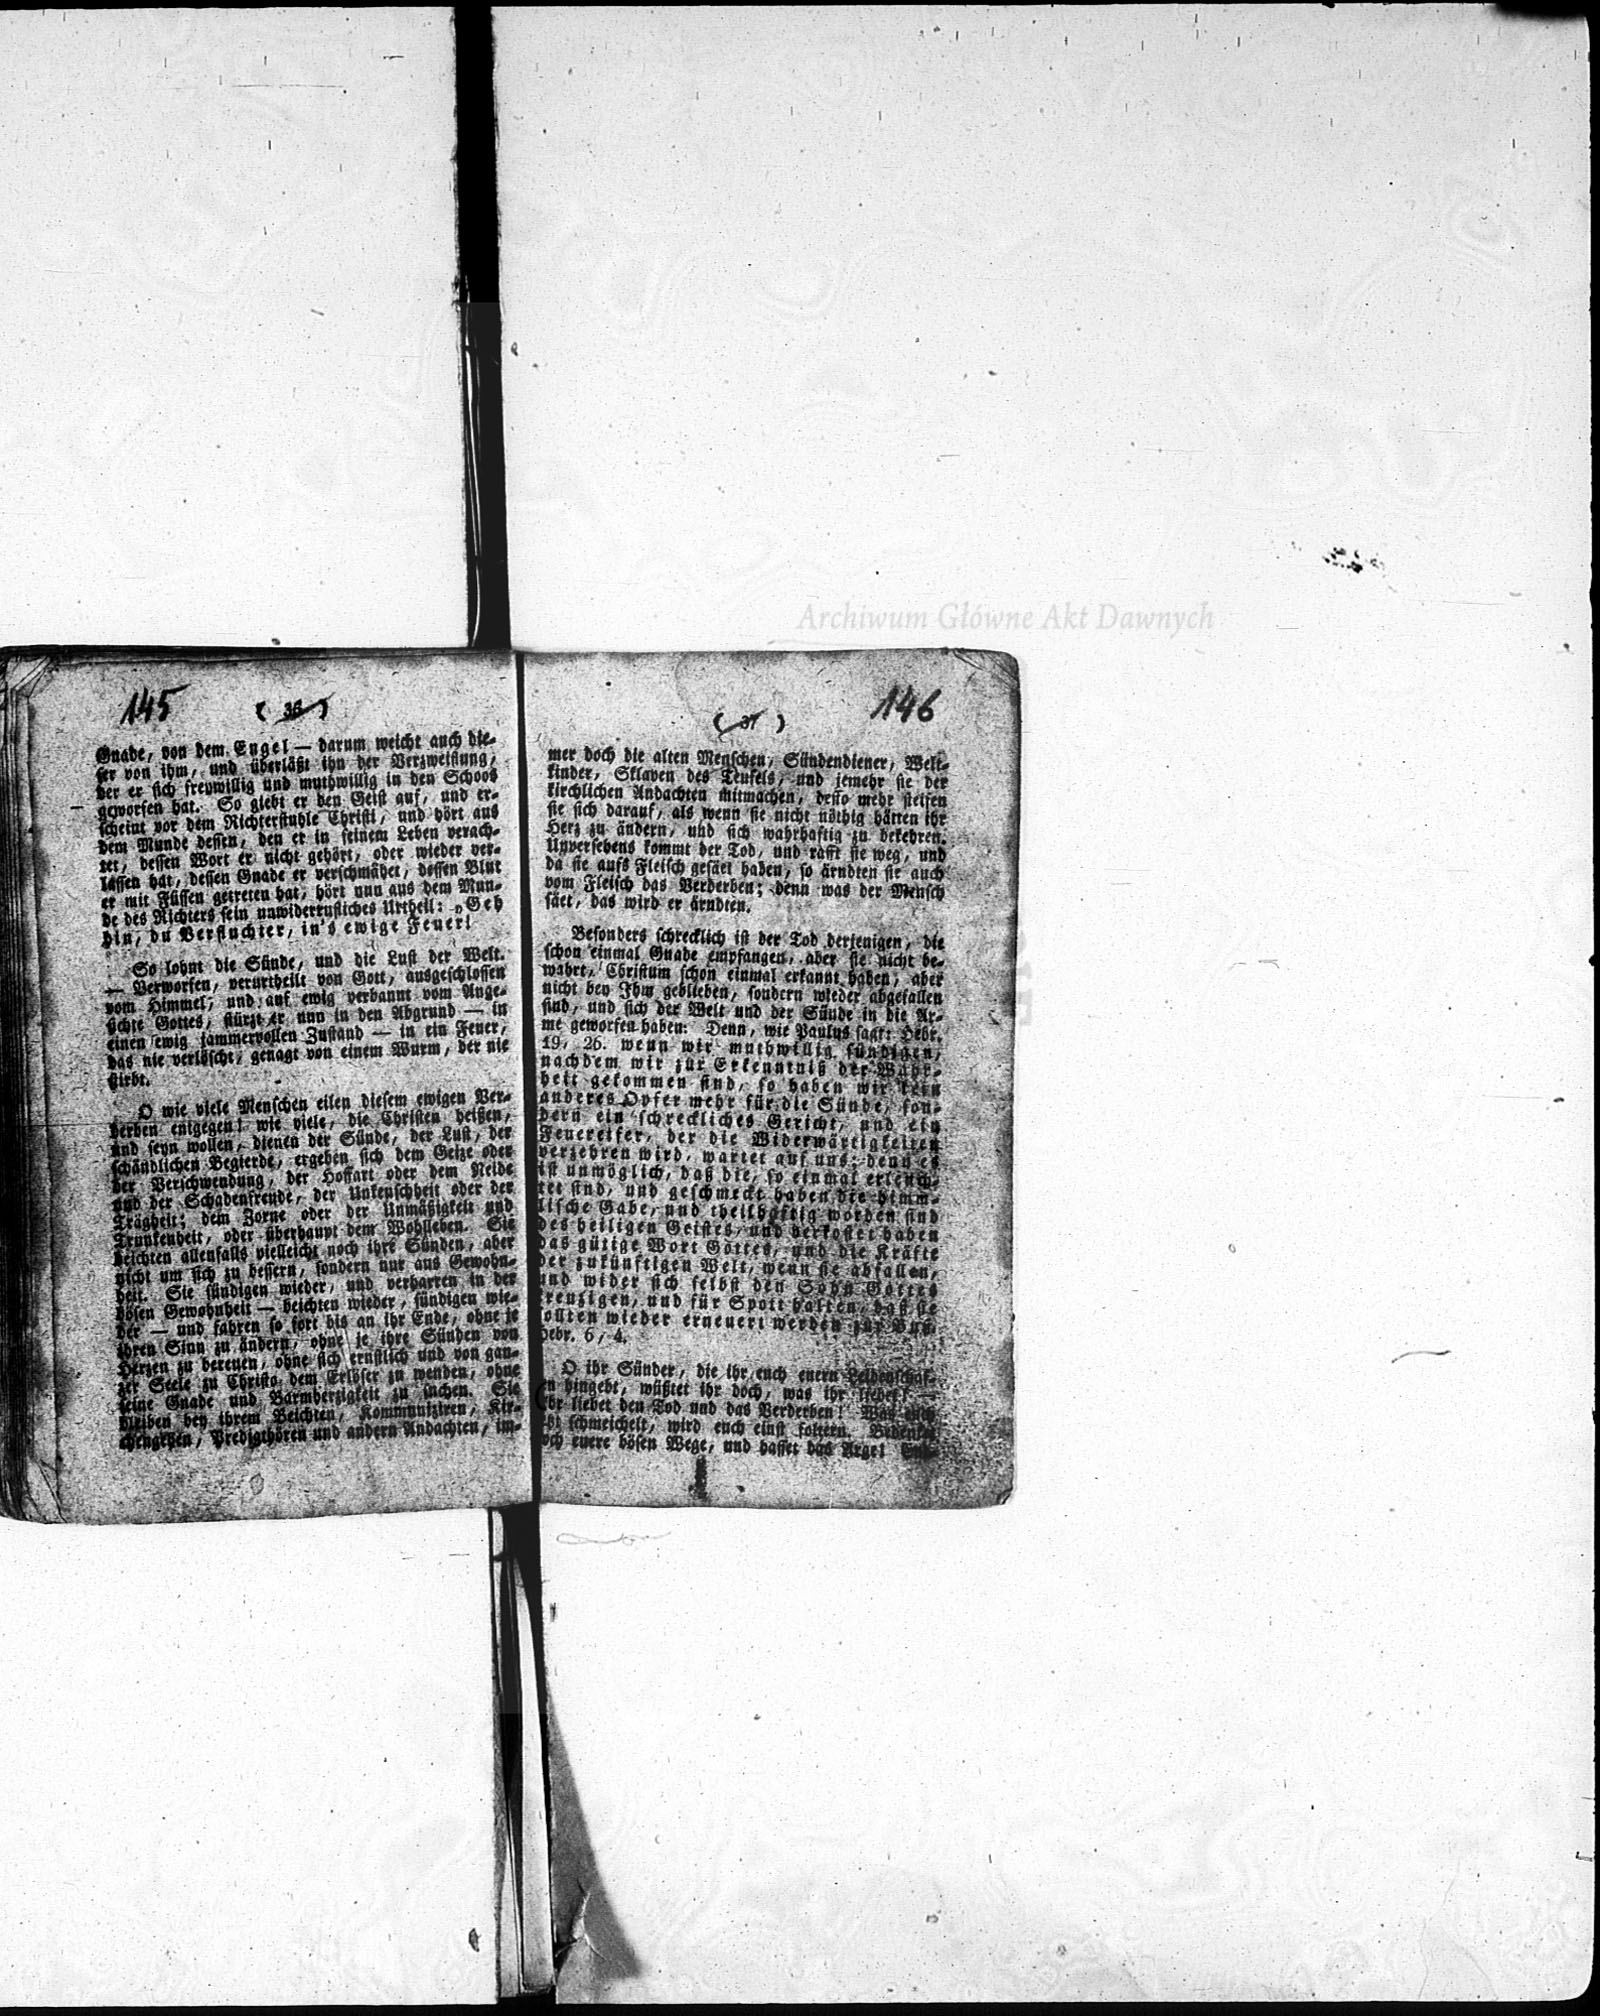 Archiwum Główne Akt Dawnych
145
( 36 )
Gnade, von dem Engel — darum weicht auch die-
ser von ihm, und überläßt ihn der Verzweiflung,
der er sich freywillig und muthwillig in den Schoos
geworfen hat. So giebt er den Geist auf, und er-
scheint vor dem Richterstuhle Christi, und hört aus
dem Munde dessen, den er in seinem Leben verach-
tet, dessen Wort er nicht gehört, oder wieder ver-
lassen hat, dessen Gnade er verschmähet, dessen Blut
er mit Füssen getreten hat, hört nun aus dem Mun-
de des Richters sein unwiderrufliches Urtheil: „Geh
hin, du Verfluchter, in's ewige Feuer!
So lohnt die Sünde, und die Lust der Welt.
— Verworfen, verurtheilt von Gott, ausgeschlossen
vom Himmel, und auf ewig verbannt vom Ange-
sichte Gottes, stürzt er nun in den Abgrund — in
einen ewig jammervollen Zustand — in ein Feuer,
das nie verlöscht, genagt von einem Wurm, der nie
stirbt.
O wie viele Menschen eilen diesem ewigen Ver-
derben entgegen! wie viele, die Christen heißen,
und seyn wollen, dienen der Sünde, der Lust, der
schändlichen Begierde, ergeben sich dem Geize oder
der Verschwendung, der Hoffart oder dem Neide
und der Schadenfreude, der Unkeuschheit oder der
Trägheit; dem Zorne oder der Unmäßigkeit und
Trunkenheit, oder überhaupt dem Wohlleben. Sie
beichten allenfalls vielleicht noch ihre Sünden, aber
nicht um sich zu bessern, sondern nur aus Gewohn-
heit. Sie sündigen wieder, und verharren in der
bösen Gewohnheit — beichten wieder, sündigen wie-
der — und fahren so fort bis an ihr Ende, ohne je
ihren Sinn zu ändern, ohne je ihre Sünden von
Herzen zu bereuen, ohne sich ernstlich und von gan-
zer Seele zu Christo dem Erlöser zu wenden, ohne
seine Gnade und Barmherzigkeit zu suchen. Sie
bleiben bey ihrem Beichten, Kommuniziren, Kir-
chengehen, Predigthören und andern Andachten, im-
146
( 37 )
mer doch die alten Menschen, Sündendiener, Welt-
kinder, Sklaven des Teufels, und jemehr sie der
kirchlichen Andachten mitmachen, desto mehr steifen
sie sich darauf, als wenn sie nicht nöthig hätten ihr
Herz zu ändern, und sich wahrhaftig zu bekehren.
Unversehens kommt der Tod, und rafft sie weg, und
da sie aufs Fleisch gesäet haben, so ärndten sie auch
vom Fleisch das Verderben; denn was der Mensch
säet, das wird er ärndten.
Besonders schrecklich ist der Tod derjenigen, die
schon einmal Gnade empfangen, aber sie nicht be-
wahrt, Christum schon einmal erkannt haben, aber
nicht bey Ihm geblieben, sondern wieder abgefallen
sind, und sich der Welt und der Sünde in die Ar-
me geworfen haben: Denn, wie Paulus sagt: Hebr.
19, 26. wenn wir muthwillig sündigen,
nachdem wir zur Erkenntniß der Wahr-
heit gekommen sind, so haben wir kein
anderes Opfer mehr für die Sünde, son-
dern ein schreckliches Gericht, und ein
Feuereifer, der die Widerwärtigkeiten
verzehren wird, wartet auf uns; denn es
ist unmöglich, daß die, so einmal erleuch-
tet sind, und geschmeckt haben die himm-
lische Gabe, und theilhaftig worden sind
des heiligen Geistes, und verkostet haben
das gütige Wort Gottes, und die Kräfte
der zukünftigen Welt, wenn sie abfallen,
und wider sich selbst den Sohn Gottes
kreuzigen, und für Spott halten, daß sie
sollten wieder erneuert werden zur Buß.
Hebr. 6, 4.
O ihr Sünder, die ihr euch euern Leidenschaf-
n hingebt, wüßtet ihr doch, was ihr liebet! —
Ihr liebet den Tod und das Verderben! Was euch
tzt schmeichelt, wird euch einst foltern. Bedenket
och euere bösen Wege, und hasset das Arge!